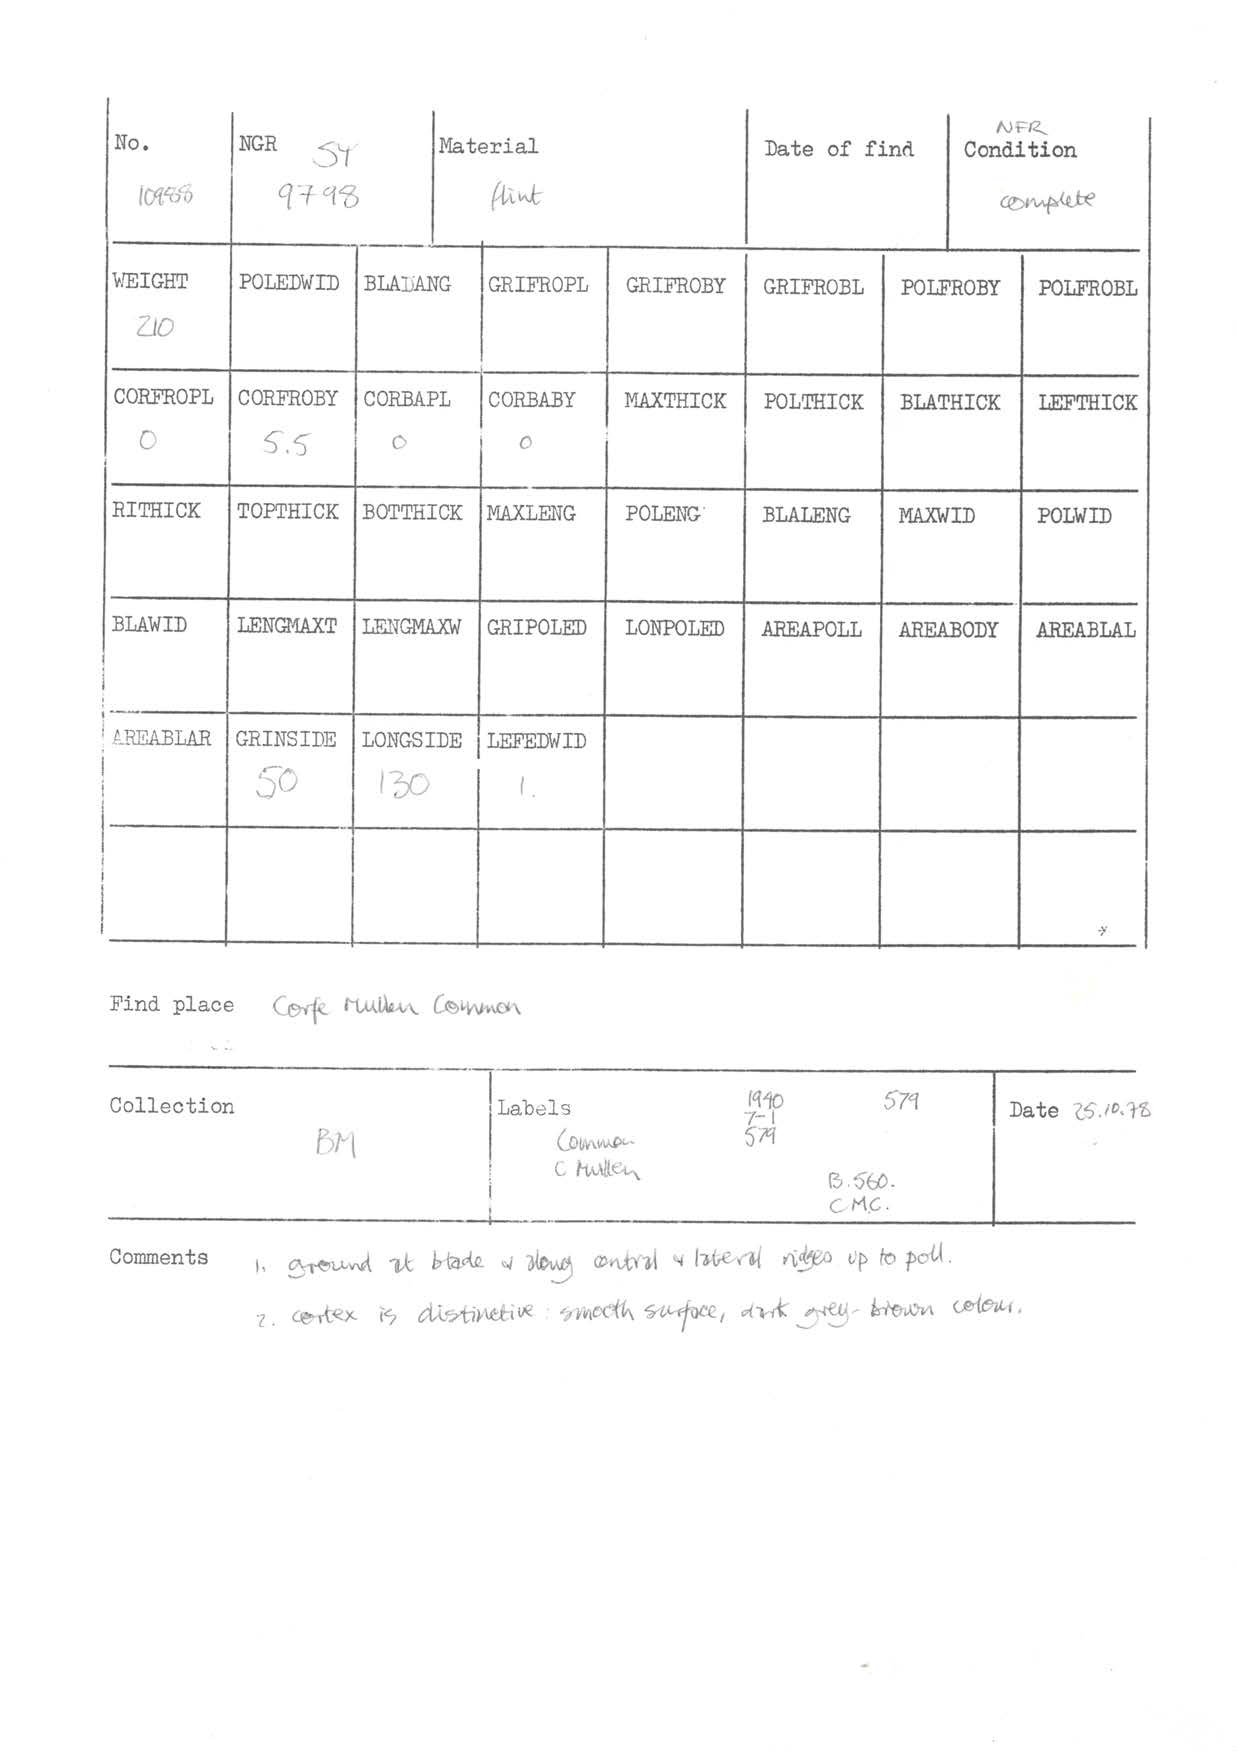 No. NGR SY Material Date of find NFR Condition
9798 flint complete
WEIGHT POLEDWID BLADANG GRIFROPL GRIFROBY GRIFROBL POLFROBY POLFROBL
210
CORFROPL CORFROBY CORBAPL CORBABY MAXTHICK POLTHICK BLATHICK LEFTHICK
0 5.5 0 0
RITHICK TOPTHICK BOTTHICK MAXLENG POLENG BLALENG MAXWID POLWID
BLAWID LENGMAXT LENGMAXW GRIPOLED LONPOLED AREAPOLL AREABODY AREABLAL
AREABLAR GRINSIDE LONGSIDE LEFEDWID
50 130 1.
Find place Corfe Mullen Common
Collection BM
Labels 1940 579
7-1
Common 579
C Mullen
B.560.
C.M.C.
Date 25.10.78
Comments 1. ground at blade & along central & lateral ridges up to poll.
2. cortex is distinctive: smooth surface, dark grey-brown colour.